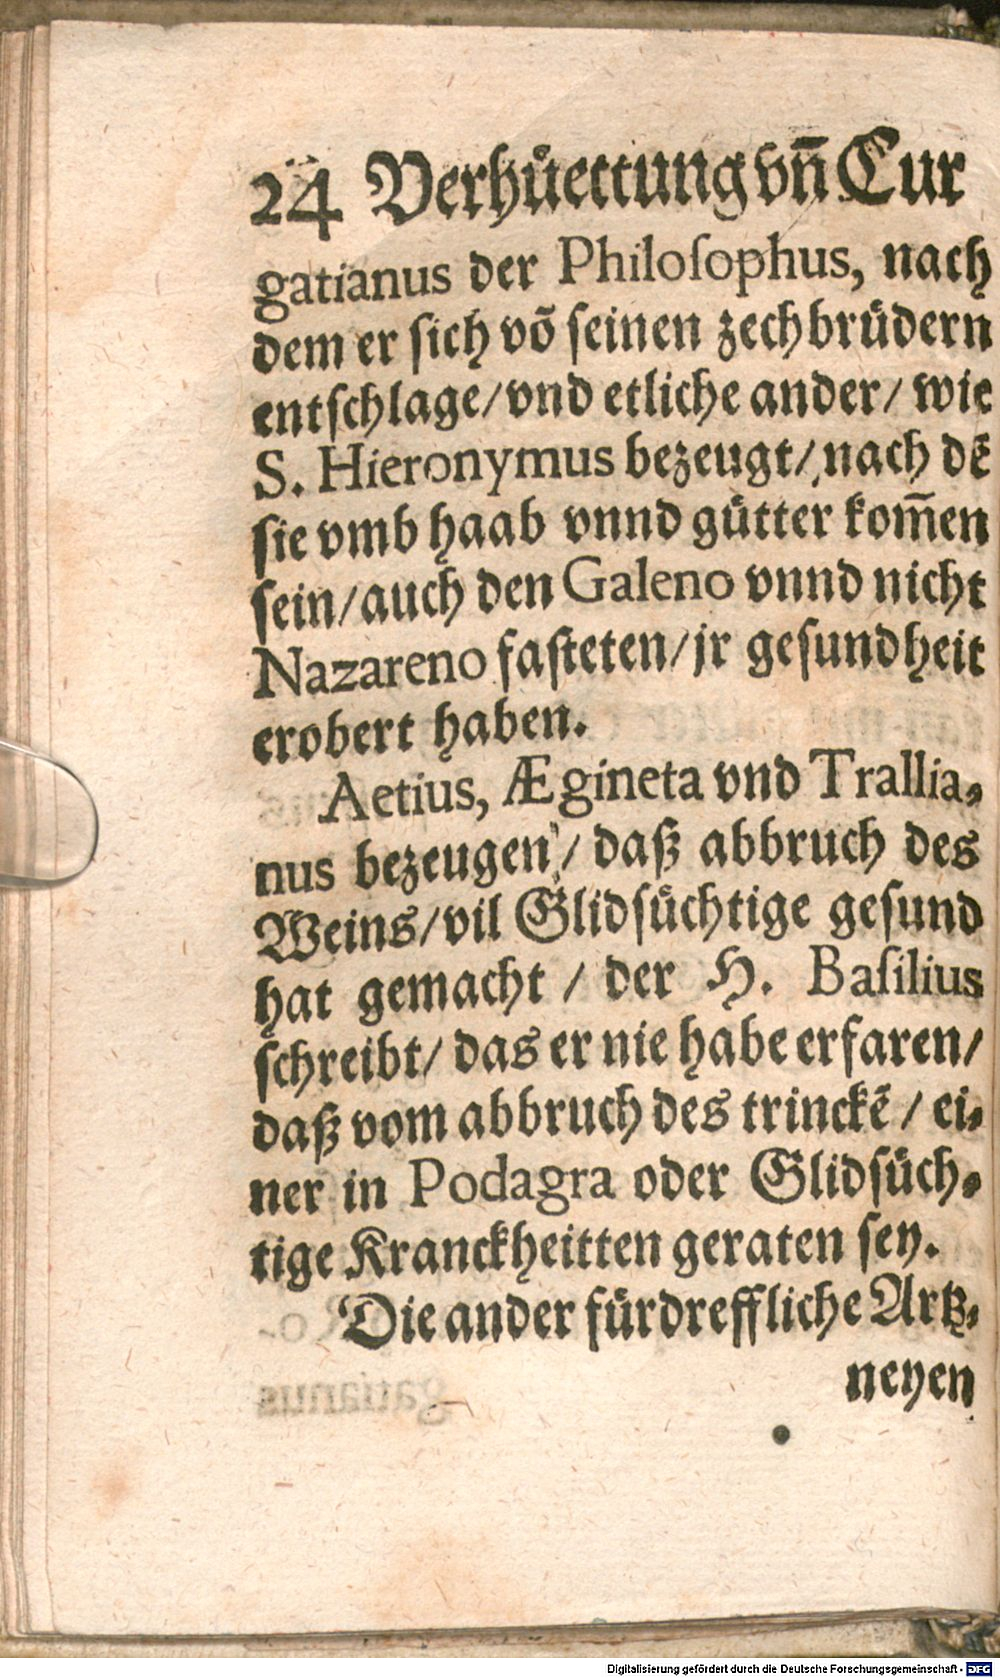 24 Verhuͤettung vñ Cur
gatianus der Philoſophus, nach
dem er ſich võ ſeinen zechbruͤdern
entſchlage/vnd etliche ander/ wie
S. Hieronymus bezeugt/ nach dẽ
ſie vmb haab vnnd guͤtter kom̃en
ſein/auch den Galeno vnnd nicht
Nazareno faſteten/jr geſundheit
erobert haben.
Aetius, Ægineta vnd Trallia⸗
nus bezeugen / daß abbruch des
Weins/vil Glidſuͤchtige geſund
hat gemacht / der H. Baſilius
ſchreibt/ das er nie habe erfaren/
daß vom abbruch des trinckẽ / ei⸗
ner in Podagra oder Glidſuͤch⸗
tige Kranckheitten geraten ſey.
Die ander fuͤrdreffliche Artz⸗
neyen
Digitalisierung gefördert durch die Deutsche Forschungsgemeinschaft - DFG